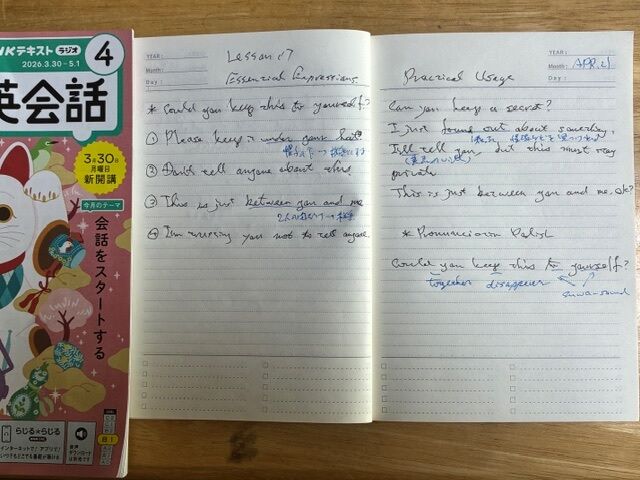 NHKテキスト ラジオ
2026.3.30-5.1
4
英会話
3月30日
月曜日
新開講
今月のテーマ
会話をスタートする
らじる★らじる
インターネットで!アプリで!
音声
ダウンロード
YEAR :
Month:
Day :
Lesson 17
Essential Expressions
* Could you keep this to yourself?
① Please keep it under your hat.
帽子の下→秘密にする
② Don't tell anyone about this
③ This is just between you and me
④ I'm trusting you not to tell anyone
YEAR :
Month: APR, 21
Day :
Practical Usage
Can you keep a secret?
I just found out about something,
I'll tell you, but this must stay
private
This is just between you and me, ok?
* Pronunciation Polish
Could you keep this to yourself?
together disappear
schwa-sound